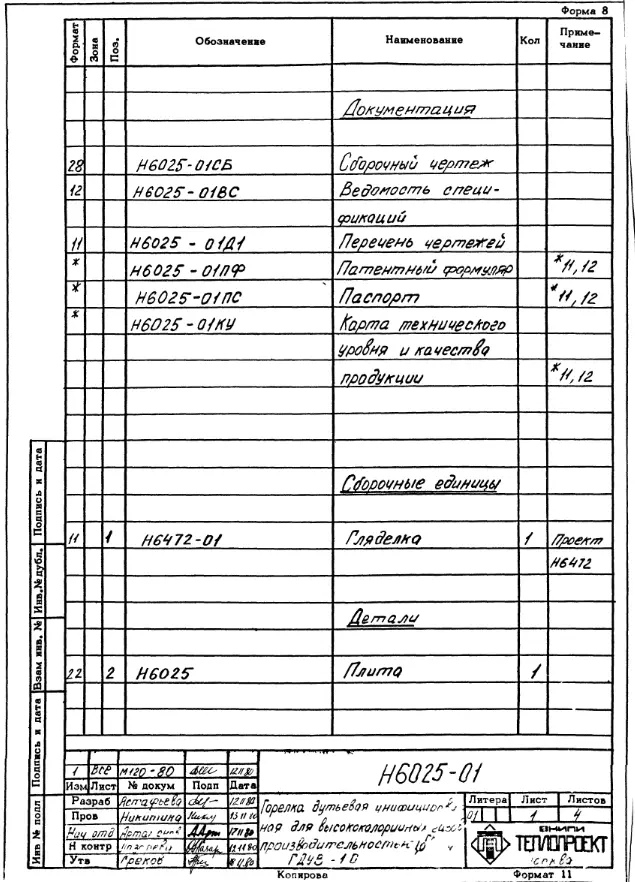 Форма 8
Формат Зона Поз. Обозначение Наименование Кол Приме-
чание
Документация
28 Н6025-01СБ Сборочный чертеж
12 Н6025-01ВС Ведомость специ-
фикаций
11 Н6025 - 01Д1 Перечень чертежей
* Н6025 - 01ПФ Патентный формуляр *11,12
* Н6025-01ПС Паспорт *11,12
* Н6025-01КУ Карта технического
уровня и качества
продукции *11,12
Сборочные единицы
11 1 Н6472-01 Гляделка 1 Проект
Н6472
Детали
22 2 Н6025 Плита 1
Подпись и дата
Инв.№ дубл.
Взам инв. №
Подпись и дата
Инв № подл
1 Все М120-80 12.11.80
Изм Лист № докум Подп Дата
Н6025-01
Разраб Астафьева 12.11.80
Пров Никитина
Нач отд
Н контр
Утв Греков
Горелка дутьевая унифициров
ная для высококалорийных газов
производительностью
ГДУВ-1
Литера Лист Листов
01 1 4
ВНИПИ
ТЕПЛОПРОЕКТ
Москва
Копирова Формат 11